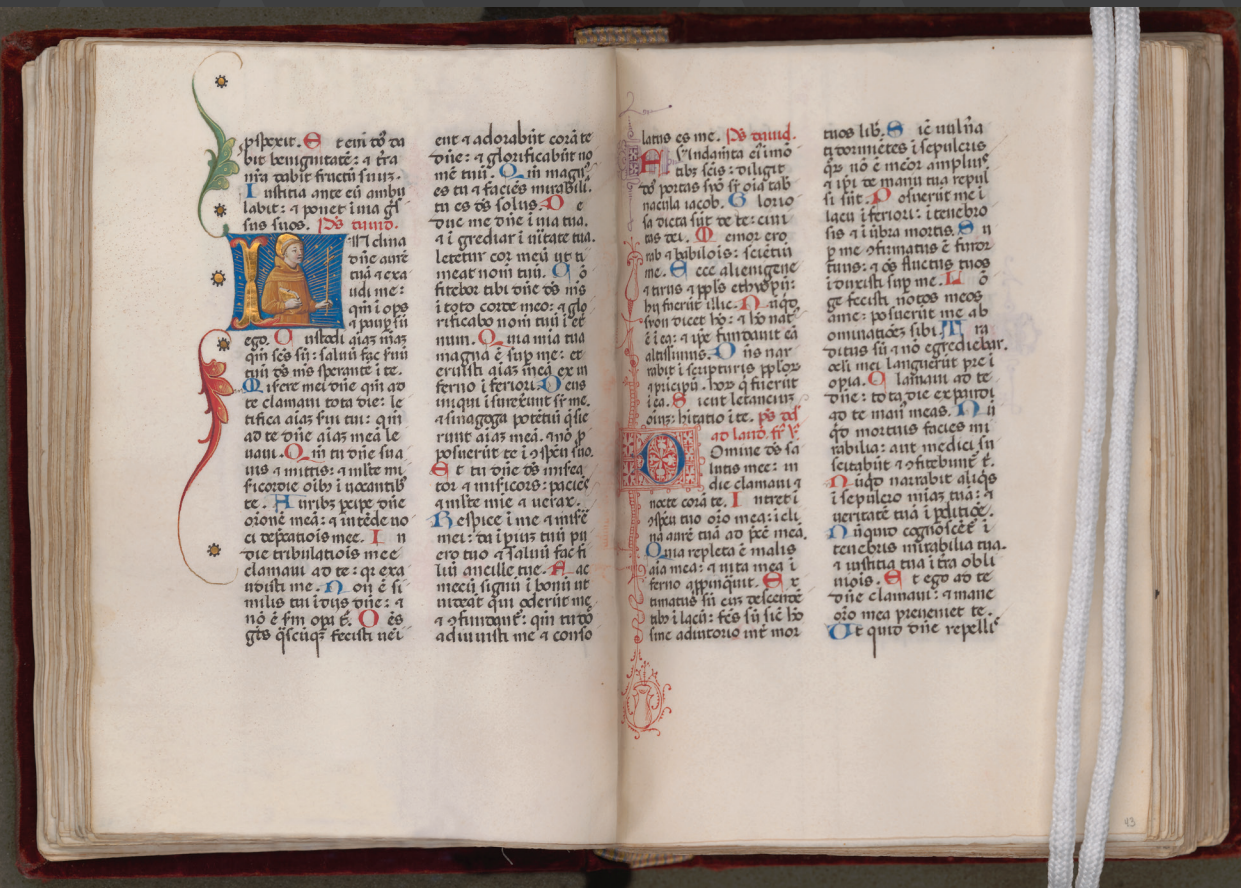 pspexit. Etem̄ dn̄s da
bit benignitatē: ⁊ t̄ra
nr̄a dabit fructū suū.
Iustitia ante eū ambu
labit: ⁊ ponet ī uia gs̄
sus suos. Ps̄ dauid.
Inclina
dn̄e aurē
tuā ⁊ exa
udi me:
qm̄ īops
⁊ paup sū
ego. Custodi aīaȝ meaȝ
qm̄ scs̄ sū: saluū fac ẜuū
tuū ds̄ ms̄ sperantē ī te.
Miserere mei dn̄e qm̄ ad
te clamaui tota die: le
tifica aīaȝ ẜui tui: qm̄
ad te dn̄e aīaȝ meā le
uaui. Qm̄ tu dn̄e sua
uis ⁊ mitis: ⁊ multe mi
ẜicordie oībꝰ īuocantibꝰ
te. Auribꝰ pcipe dn̄e
orōnē meā: ⁊ intēde uo
ci dep̄catiōis mee. In
die tribulatiōis mee
clamaui ad te: qr exa
udisti me. Non ē si
milis tui ī diis dn̄e: ⁊
nō ē ẜm opa t̄. Oēs
gēs qscūqȝ fecisti uēi
ent ⁊ adorabūt corā te
dn̄e: ⁊ glorificabūt no
mē tuū. Qm̄ magnꝰ
es tu ⁊ faciēs mirabili.
tu es ds̄ solus. De
duc me dn̄e ī uia tua.
⁊ īgrediar ī ūitate tua.
letetur cor meū ut ti
meat nom̄ tuū. Cō
fitebor tibi dn̄e ds̄ ms̄
ī toto corde meo: ⁊ glo
rificabo nom̄ tuū ī et̄
num. Quia mīa tua
magna ē sup me: et
eruisti aīaȝ meā ex in
ferno īferiori. Deus
iniqui īsurexūt sr̄ me.
⁊ sinagoga potētiū q̄sie
runt aīaȝ meā. ⁊ nō p̄
posuerūt te ī ꝯspcū suo.
Et tu dn̄e ds̄ miẜea
tor ⁊ miẜicors: paciēs
⁊ multe mīe ⁊ uerax.
Respice ī me ⁊ miẜē
mei: da īpiuȝ tuū pu
ero tuo ⁊ saluū fac fi
liū ancille tue. Fac
mecū signū ī bonū ut
uideat qui oderūt me
⁊ ꝯfundant̄: qm̄ tu dn̄
adiuuisti me ⁊ conso
latus es me. Ps̄ dauid.
Fūndamēta eiꝰ ī mō
tibꝰ scīs: diligit
dn̄s portas syō sr̄ oīa tab
nacula iacob. Glorio
sa dicta sūt de te: ciui
tas dei. Memor ero
rab ⁊ babilōis: scietiū
me. Ecce alienigene
⁊ tirus ⁊ ppl̄s ethyopū:
hii fuerūt illic. Nūqd̄
syon dicet hō: ⁊ hō nat
ē ī ea: ⁊ ipe fundauit eā
altissimus. Dn̄s nar
rabit ī scripturis pplōȝ
⁊ pricipū. hoȝ q̄ fuerūt
ī ea. Sicut letanciuȝ
oīuȝ: hitatio ī te. ps̄ dd̄
ad laud. fr̄ v.
Domine ds̄ sa
lutis mee: in
die clamaui ⁊
nocte corā te. Intret ī
ꝯspcū tuo or̄o mea: īcli
na aurē tuā ad p̄cē meā.
Quia repleta ē malis
aīa mea: ⁊ uita mea ī
ferno appinquit. Ex
timatus sū cuȝ descēdē
tibꝰ ī lacū: fcs̄ sū sic hō
sine adiutorio int̄ mor
tuos lib̄. Sic uulnā
ti dormiētes ī sepulcris
qꝫ nō ē mēor amplius
⁊ ip̄i de manu tua repul
si sūt. Posuerūt me ī
lacu īferiori: ī tenebro
sis ⁊ ī ūbra mortis. Su
p me ꝯfirmatus ē furor
tuus: ⁊ oēs fluctus tuos
īduxisti sup me. Lō
ge fecisti notos meos
ame: posuerūt me ab
ominatioēȝ sibi. Tra
ditus sū ⁊ nō egrediebar.
ocli mei languerūt pre ī
opia. Clamaui ad te
dn̄e: tota die expandi
ad te manꝰ meas. Nū
qd̄ mortuis facies mi
rabilia: aut medici su
scitabūt ⁊ ꝯfitebunt̄ t̄.
Nūqd narrabit aliqs
ī sepulcro miaȝ tuā: ⁊
ueritatē tuā ī pditiōe.
Nūquid cognoscēt̄ ī
tenebris mirabilia tua.
⁊ iustitia tua ī t̄ra obli
uiōis. Et ego ad te
dn̄e clamaui: ⁊ mane
or̄o mea preueniet te.
Ut quid dn̄e repellis
93